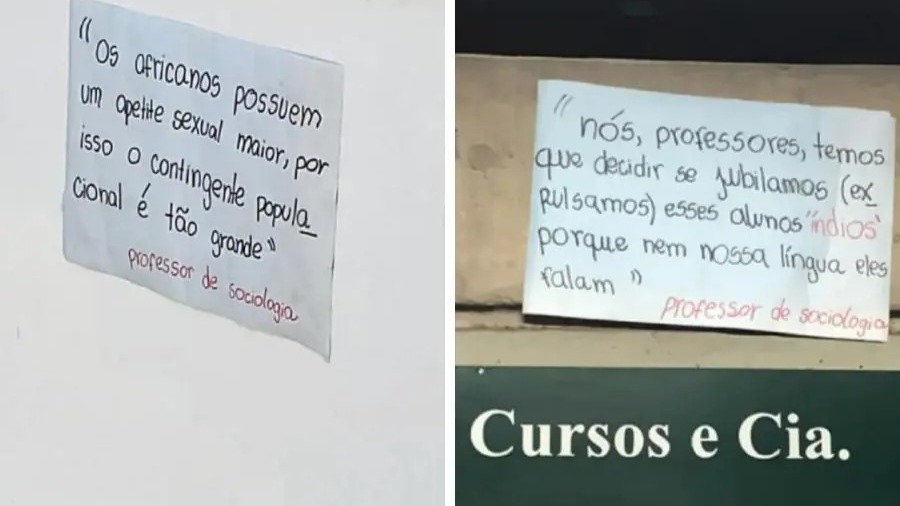 "Os africanos possuem
um apetite sexual maior, por
isso o contingente popula
cional é tão grande"
professor de sociologia
"nós, professores, temos
que decidir se jubilamos (ex
pulsamos) esses alunos "índios"
porque nem nossa língua eles
falam"
professor de sociologia
Cursos e Cia.